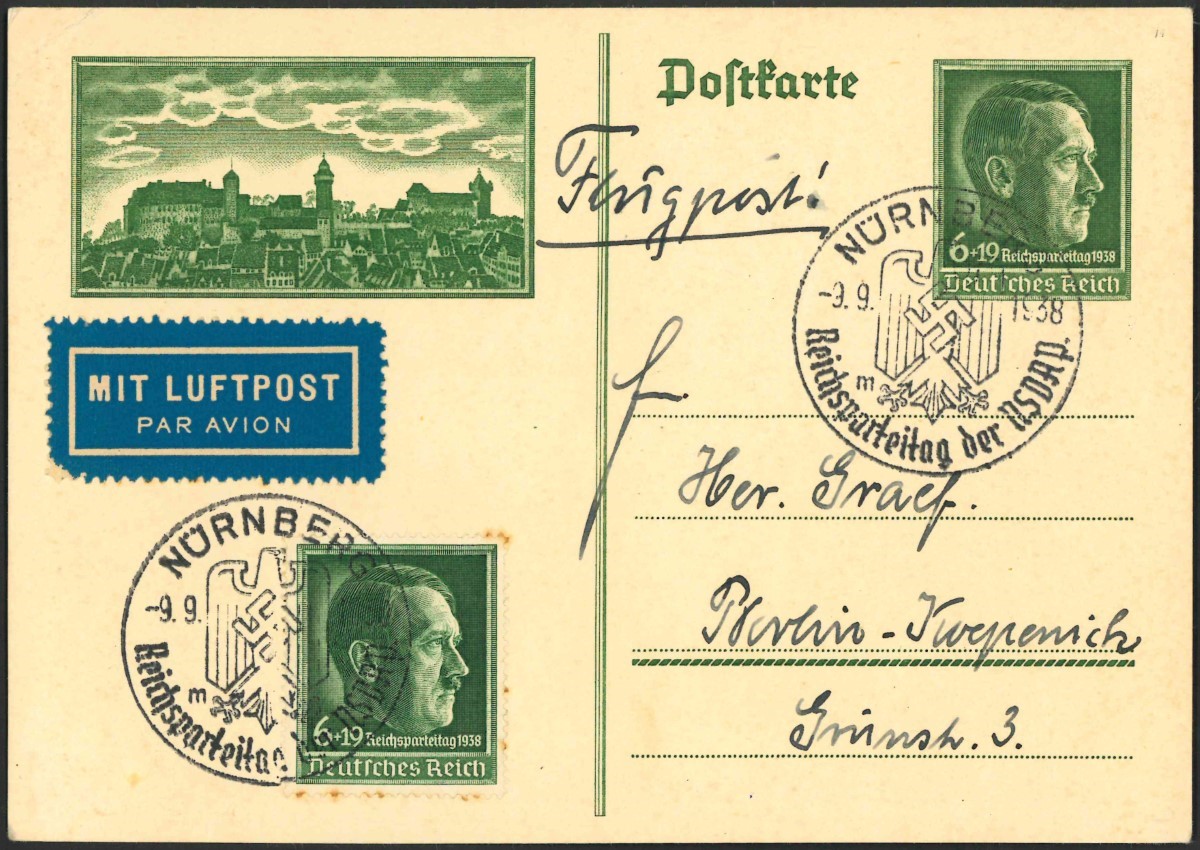 Postkarte
Flugpost!
6+19 Reichsparteitag 1938
Deutsches Reich
NÜRNBERG
-9.9. 1938
m
Reichsparteitag der NSDAP.
MIT LUFTPOST
PAR AVION
f.
Her. Graef.
Berlin - Koepenick
Grünstr. 3.
NÜRNBERG
-9.9.
m
Reichsparteitag der NSDAP.
6+19 Reichsparteitag 1938
Deutsches Reich